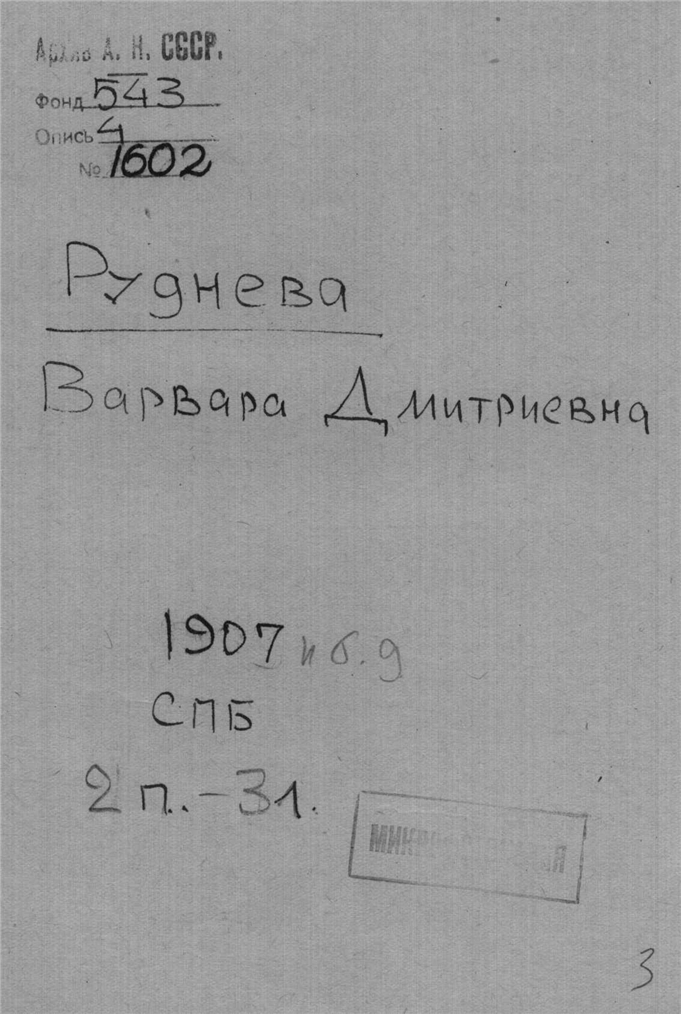 Архив А. Н. СССР.
Фонд 543
Опись 4
№ 1602
Руднева
Варвара Дмитриевна
1907 и б. д
СПБ
2 п. – 3 л.
3